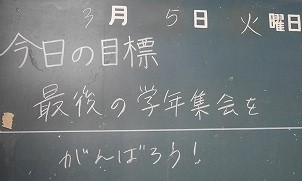 3月5日火曜日
今日の目標
最後の学年集会を
がんばろう!